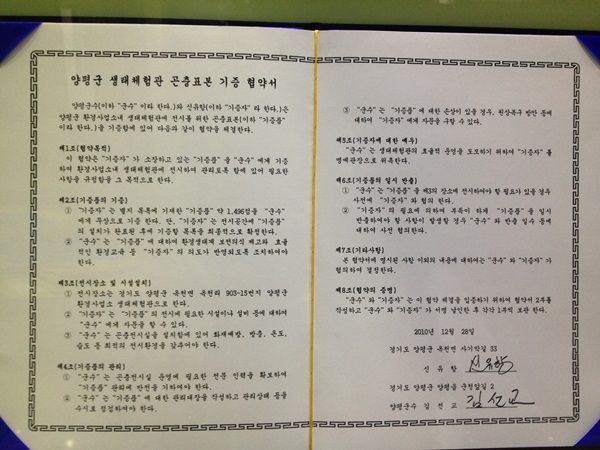 양평군 생태체험관 곤충표본 기증 협약서
양평군수(이하 "군수" 이라 한다.)와 신유항(이하 "기증자" 라 한다.)은
양평군 환경사업소내 생태체험관에 전시를 위한 곤충표본(이하 "기증품"
이라 한다.)을 기증함에 있어 다음과 같이 협약을 체결한다.
제1조(협약목적)
이 협약은 "기증자" 가 소장하고 있는 "기증품" 을 "군수" 에게 기증하
여 환경사업소내 생태체험관에 전시하여 관리토록 함에 있어 필요한
사항을 규정함을 그 목적으로 한다.
제2조(기증품의 기증)
① "기증자" 는 별지 목록에 기재한 "기증품" 약 1,496점을 "군수"
에게 무상으로 기증 한다. 단, "기증자" 는 전시공간에 "기증품"
의 설치가 완료된 후에 기증할 목록을 최종적으로 확정한다.
② "군수" 는 "기증품" 에 대하여 환경생태계 보전의식 제고와 효율
적인 환경교육 등 "기증자" 의 의도가 반영되도록 조치하여야
한다.
제3조(전시장소 및 시설설치)
① 전시장소는 경기도 양평군 옥천면 옥천리 903-15번지 양평군
환경사업소 생태체험관으로 한다.
② "기증자" 는 "기증품" 의 전시에 필요한 시설이나 설비 등에 대하여
"군수" 에게 자문을 할 수 있다.
③ "군수" 는 곤충전시실을 설치함에 있어 화재예방, 방충, 온도,
습도 등 최적의 전시환경을 갖추어야 한다.
제4조(기증품의 관리)
① "군수" 는 곤충전시실 운영에 필요한 전문 인력을 확보하여
"기증품" 관리에 만전을 기하여야 한다.
② "군수" 는 "기증품" 에 대한 관리대장을 작성하고 관리상태 등을
수시로 점검하여야 한다.
③ "군수" 는 "기증품" 에 대한 손상이 있을 경우, 원상복구 방안 등에
대하여 "기증자" 에게 자문을 구할 수 있다.
제5조(기증자에 대한 예우)
"군수" 는 생태체험관의 효율적 운영을 도모하기 위하여 "기증자" 를
명예관장으로 위촉한다.
제6조(기증품의 일시 반출)
① "군수" 는 "기증품" 을 제3의 장소에 전시하여야 할 필요가 있을 경우
사전에 "기증자" 와 협의 한다.
② "기증자" 의 필요에 의하여 부득이 하게 "기증품" 을 일시
반출하여야 할 사항이 발생할 경우 "군수" 와 반출 일수 등에
대하여 사전 협의한다.
제7조(기타사항)
본 협약서에 명시된 사항 이외의 내용에 대하여는 "군수" 와 "기증자" 가
협의하여 결정한다.
제8조(협약의 증명)
"군수" 와 "기증자" 는 이 협약 체결을 입증하기 위하여 협약서 2부를
작성하고 "군수" 와 "기증자" 가 서명 날인한 후 각각 1부씩 보관 한다.
2010년 12월 28일
경기도 양평군 옥천면 사기막길 33
신 유 항 신유항
경기도 양평군 양평읍 군청앞길 2
양평군수 김 선 교 김선교